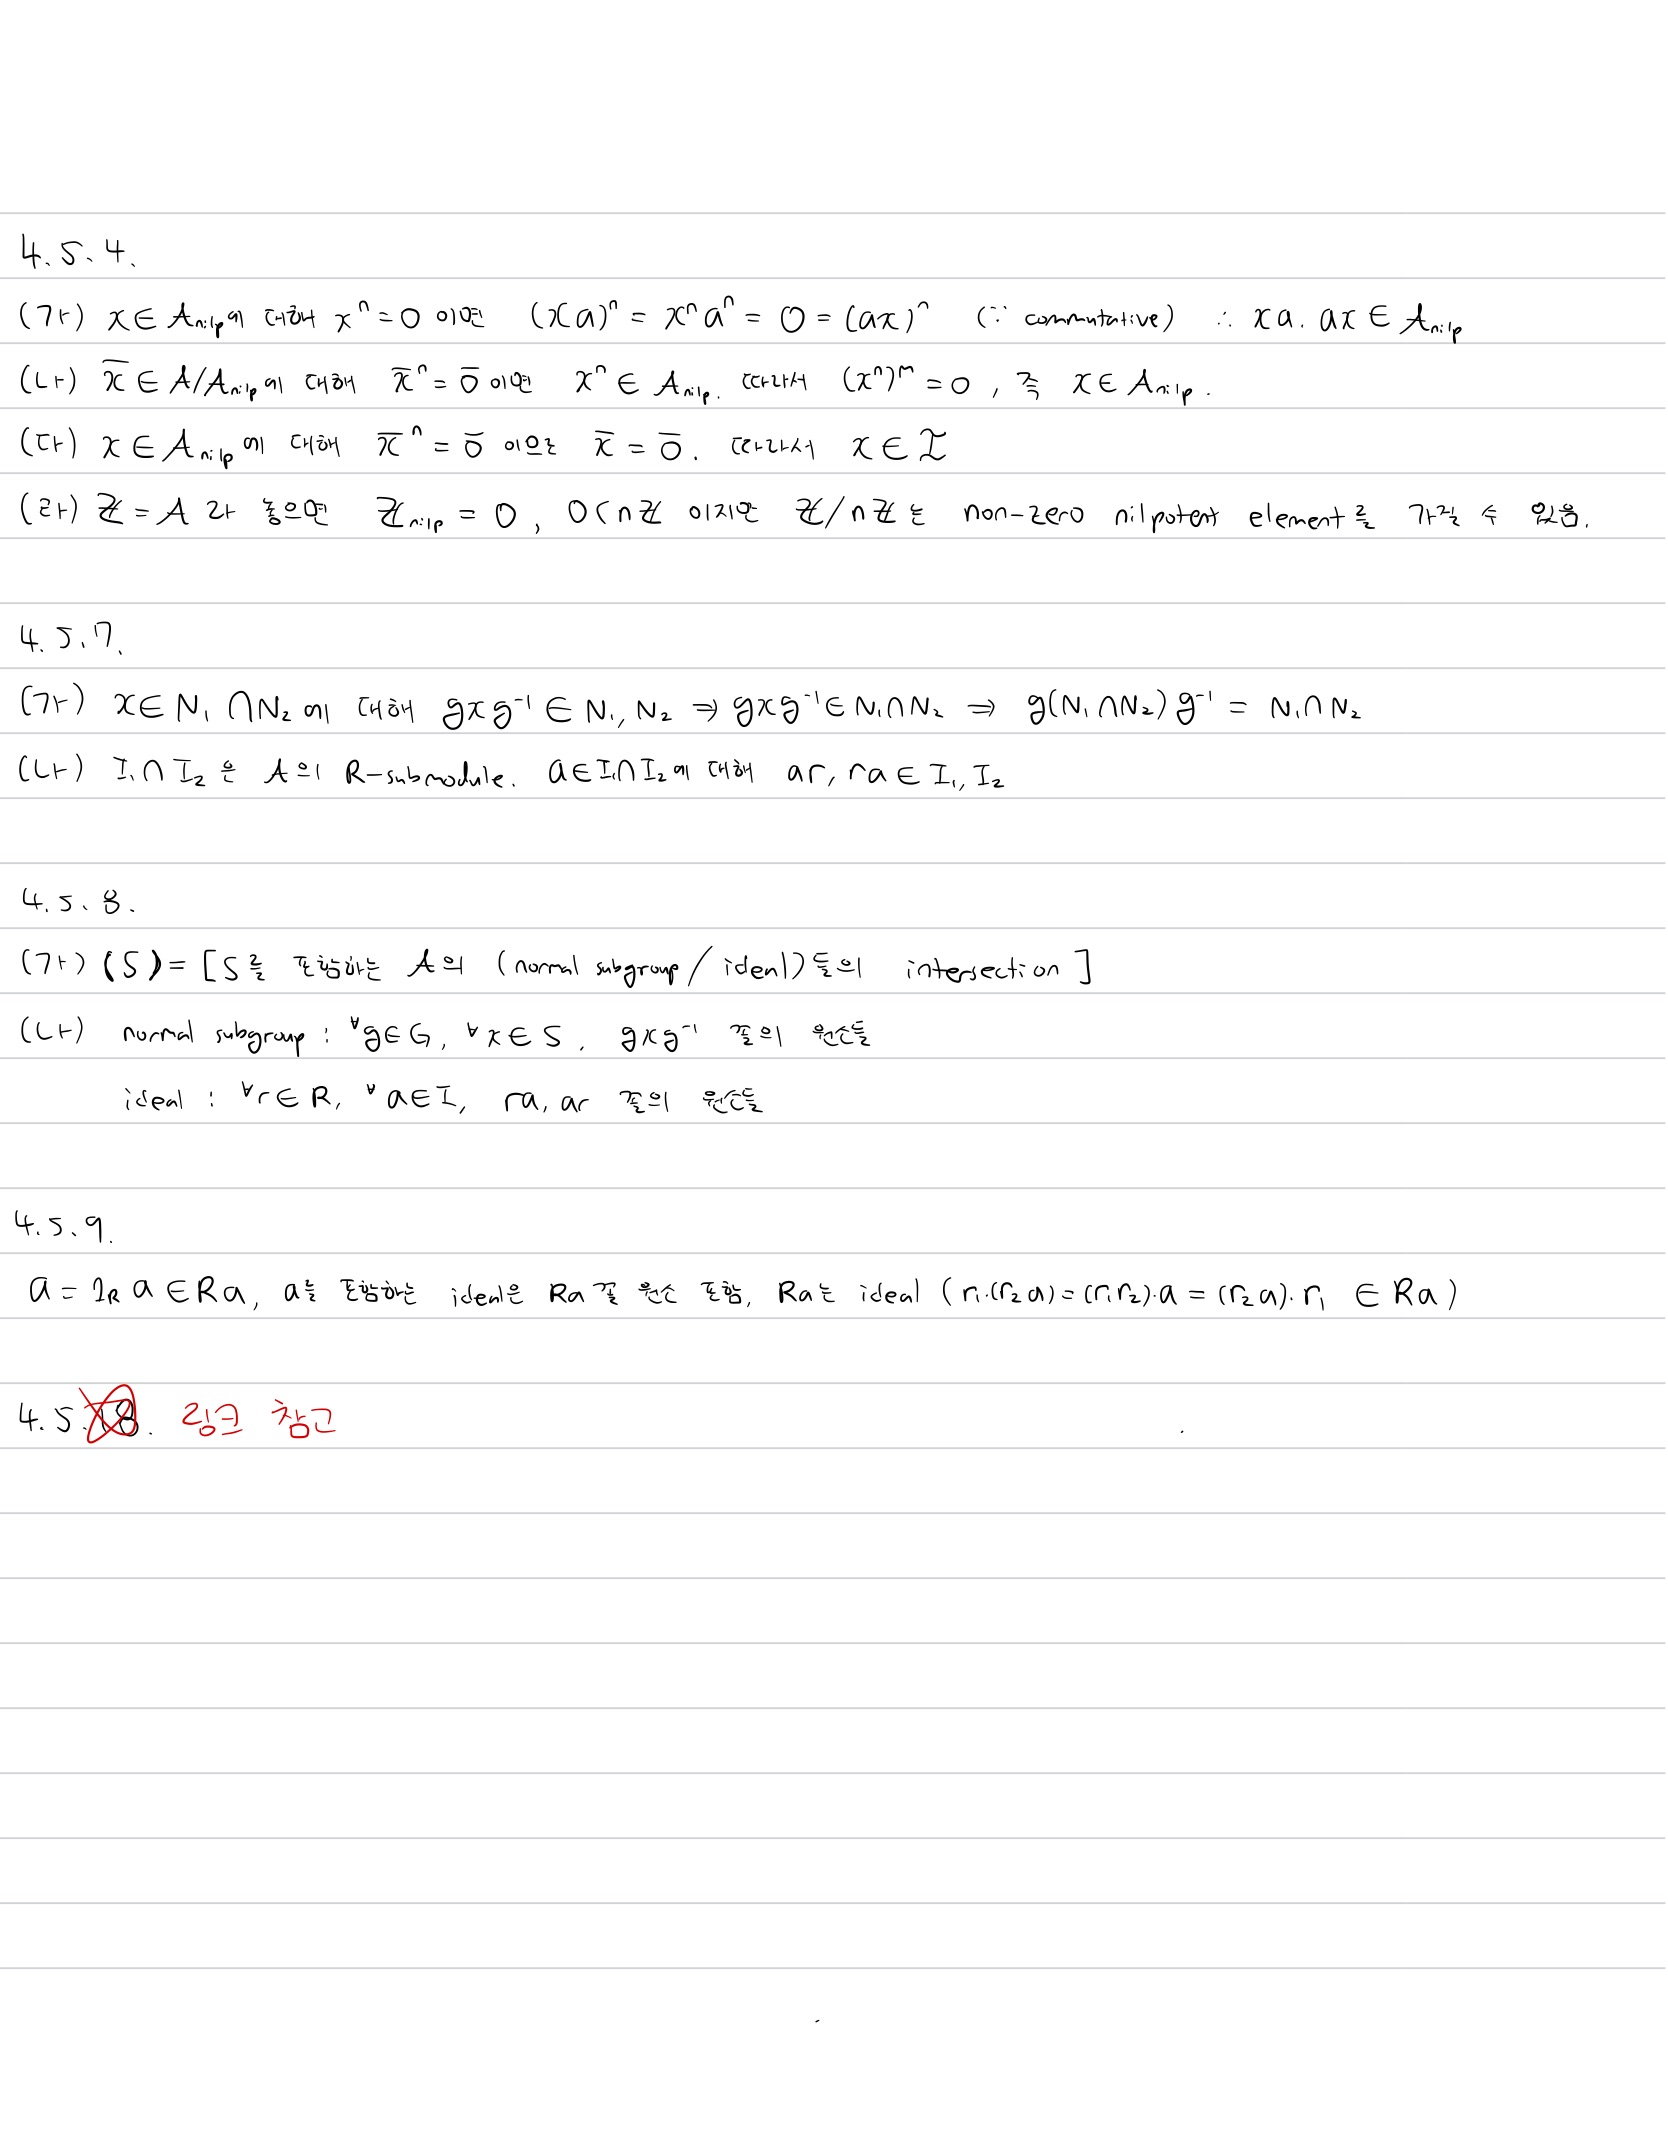 4.5.4.
(가) x ∈ A_nilp에 대해 xⁿ = 0 이면 (xa)ⁿ = xⁿaⁿ = 0 = (ax)ⁿ (∵ commutative) ∴ xa. ax ∈ A_nilp
(나) x̄ ∈ A/A_nilp에 대해 x̄ⁿ = 0̄ 이면 xⁿ ∈ A_nilp. 따라서 (xⁿ)ᵐ = 0, 즉 x ∈ A_nilp.
(다) x ∈ A_nilp에 대해 x̄ⁿ = 0̄ 이므로 x̄ = 0̄. 따라서 x ∈ I
(라) ℤ = A 라 놓으면 ℤ_nilp = 0, 0 ⊂ nℤ 이지만 ℤ/nℤ는 non-zero nilpotent element를 가질 수 있음.
4.5.7.
(가) x ∈ N₁ ∩ N₂에 대해 gxg⁻¹ ∈ N₁, N₂ ⇒ gxg⁻¹ ∈ N₁∩N₂ ⇒ g(N₁∩N₂)g⁻¹ = N₁∩N₂
(나) I₁∩I₂은 A의 R-submodule. a∈I₁∩I₂에 대해 ar, ra ∈ I₁, I₂
4.5.8.
(가) (S) = [S를 포함하는 A의 (normal subgroup / ideal)들의 intersection]
(나) normal subgroup : ∀g∈G, ∀x∈S. gxg⁻¹ 꼴의 원소들
ideal : ∀r∈R, ∀a∈I, ra, ar 꼴의 원소들
4.5.9.
a = 1_R a ∈ Ra, a를 포함하는 ideal은 Ra 꼴 원소 포함, Ra는 ideal (r₁·(r₂a) = (r₁r₂)·a = (r₂a)·r₁ ∈ Ra)
4.5.18. 링크 참고